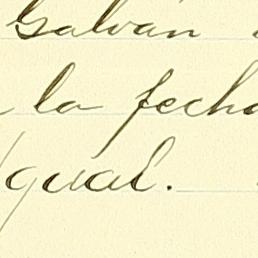 Galván
la fecha
Igual.